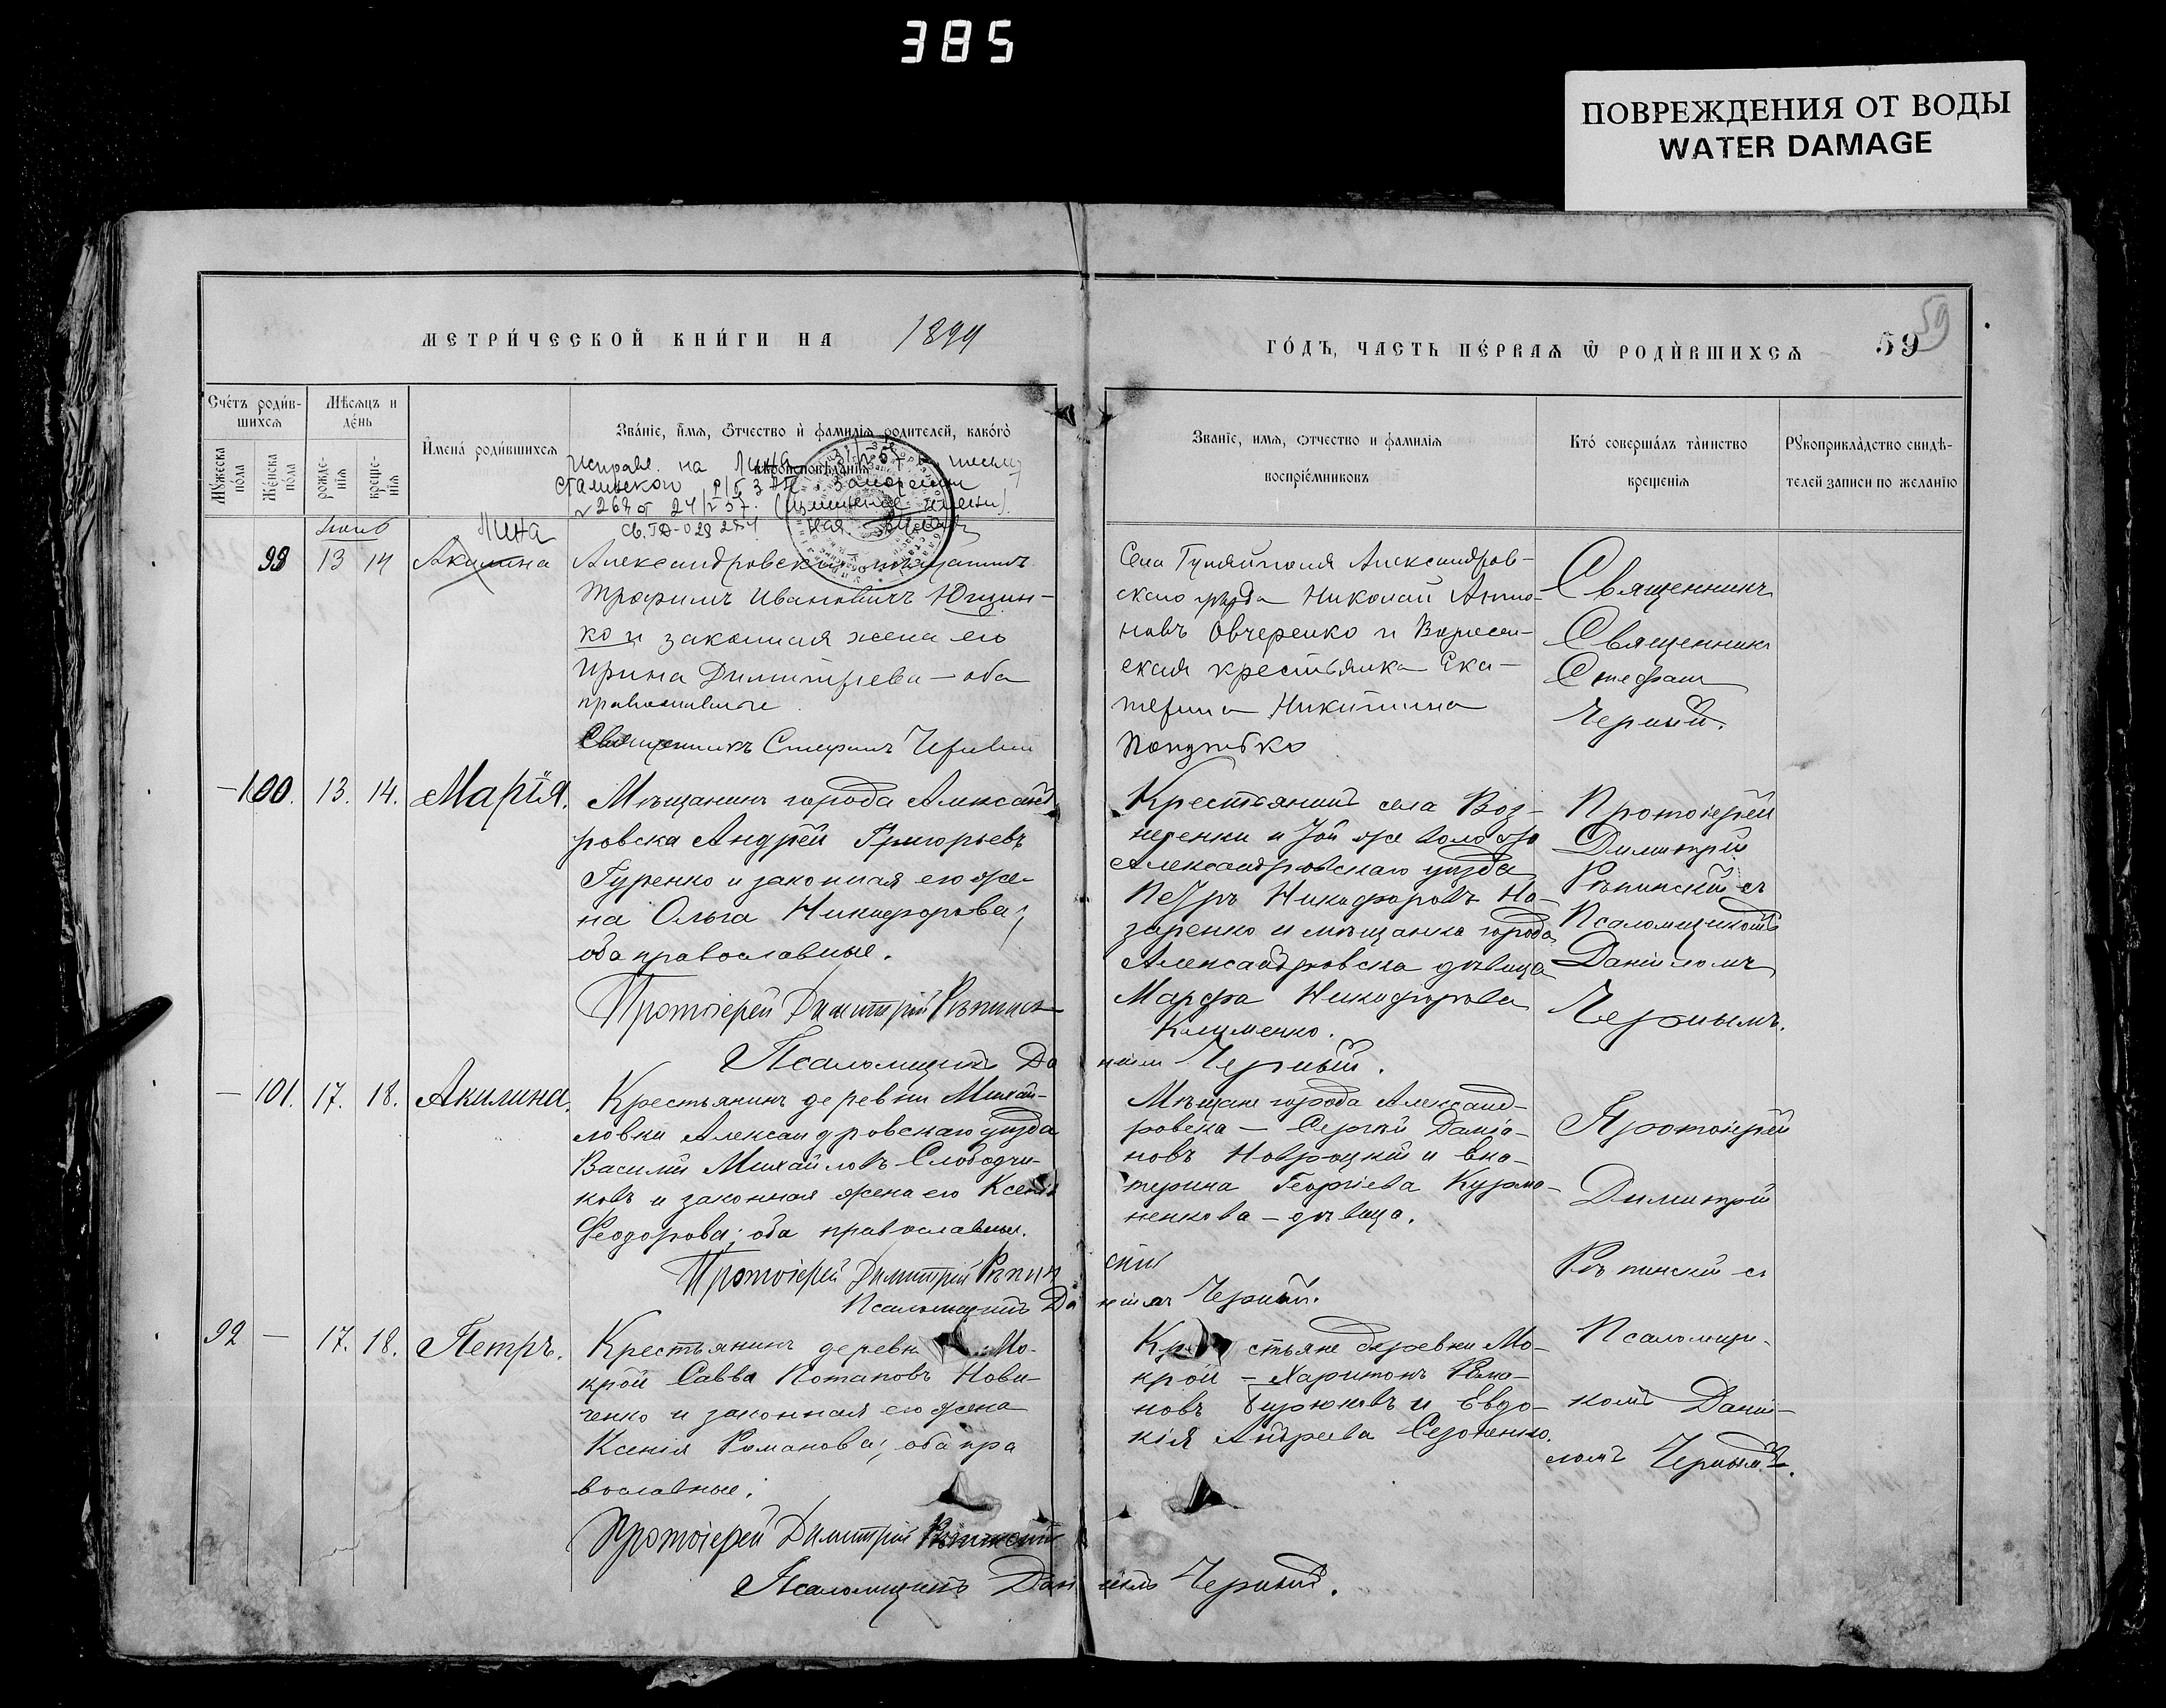 385
ПОВРЕЖДЕНИЯ ОТ ВОДЫ
WATER DAMAGE
МЕТРИ́ЧЕСКОЙ КНИ́ГИ НА 1899
ГО́ДЪ, ЧАСТЬ ПЕ́РВАѦ Ѿ РОДИ́ВШИХСѦ
59
59
Сче́тъ роди́в-
шихсѧ
Мѣ́сѧцъ и
де́нь
Имена́ роди́вшихсѧ
Зва́нїе, и́мѧ, ѻ́тчество и҆ фами́лїѧ роди́телей, како́гѡ
вѣроисповѣ́данїѧ
Мꙋ́жеска
по́ла
Же́нска
по́ла
рожде-
нїѧ
креще-
нїѧ
Званїе, имѧ, ѻтчество и фамилїѧ
воспрїе́мниковъ
Кто̀ соверша́лъ та́инство
креще́нїѧ
Рꙋкоприкла́дство свидѣ-
телей записи по жела́нїю
Исправ. на Лина
Сталинского р/б ЗАГС Запорожья
Лина
99 13 14 Акилина
Александровский мещанинъ
Трофимъ Ивановичъ Ющен-
ко и законная жена его
Ирина Димитрева — оба
православные
Священникъ Стефанъ Черный
Села Гуляйполя Александров-
скаго уезда Николай Анто-
новъ Овчеренко и
ская крестьянка Ека-
терина Никитина
Священникъ
Священникъ
Стефанъ
Черный.
— 100. 13. 14. Марія.
Мѣщанинъ города Александ
ровска Андрей Григорьевъ
Гуренко и законная его же-
на Ольга Никифорова;
оба православные.
Протоіерей Димитрій Рѣпинск
Псаломщикъ Да
ніилъ Черный.
Крестьянинъ села Воз-
несенки и той же волости
Александровскаго уѣзда
Петръ Никифоровъ На-
заренко и мѣщанка города
Александровска дѣвица
Марфа Никифорова
Клименко.
Протоіерей
Димитрій
Рѣпинскій съ
Псаломщикомъ
Даніиломъ
Чернымъ.
— 101. 17. 18. Акилина.
Крестьянинъ деревни Михай-
ловки Александровскаго уѣзда
Василій Михайловъ Слободчи-
ковъ и законная жена его Ксенія
Феодорова; оба православные.
Протоіерей Димитрій Рѣпин
скій
Псаломщикъ Да
ніилъ Черный.
Мѣщане города Александ-
ровска — Сергѣй Даміа-
новъ Навроцкій и Ека-
терина Георгіева Курма-
ненкова — дѣвица.
Протоіерей
Димитрій
Рѣпинскій съ
Псаломщи-
комъ Даніи-
ломъ Чернымъ.
92 — 17. 18. Петръ.
Крестьянинъ деревн Мо-
крой Савва Потаповъ Нови-
ченко и законная его жена
Ксенія Романова; оба пра
вославные.
Протоіерей Димитрій Рѣпинскій
Псаломщикъ Дан
іилъ Черный.
Кре стьяне деревни Мо-
крой — Харитонъ Рома-
новъ Бирюковъ и Евдо-
кія Андреева